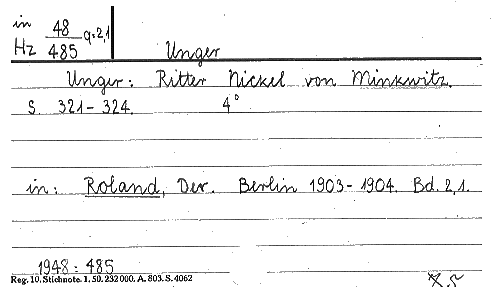 in 48
Hz 485 q:2,1
Unger
Unger: Ritter Nickel von Minkwitz.
S. 321-324. 4°
in: Roland, Der. Berlin 1903-1904. Bd. 2,1.
1948:485
Reg. 10. Stichnote. 1. 50. 232000. A. 803. S. 4062